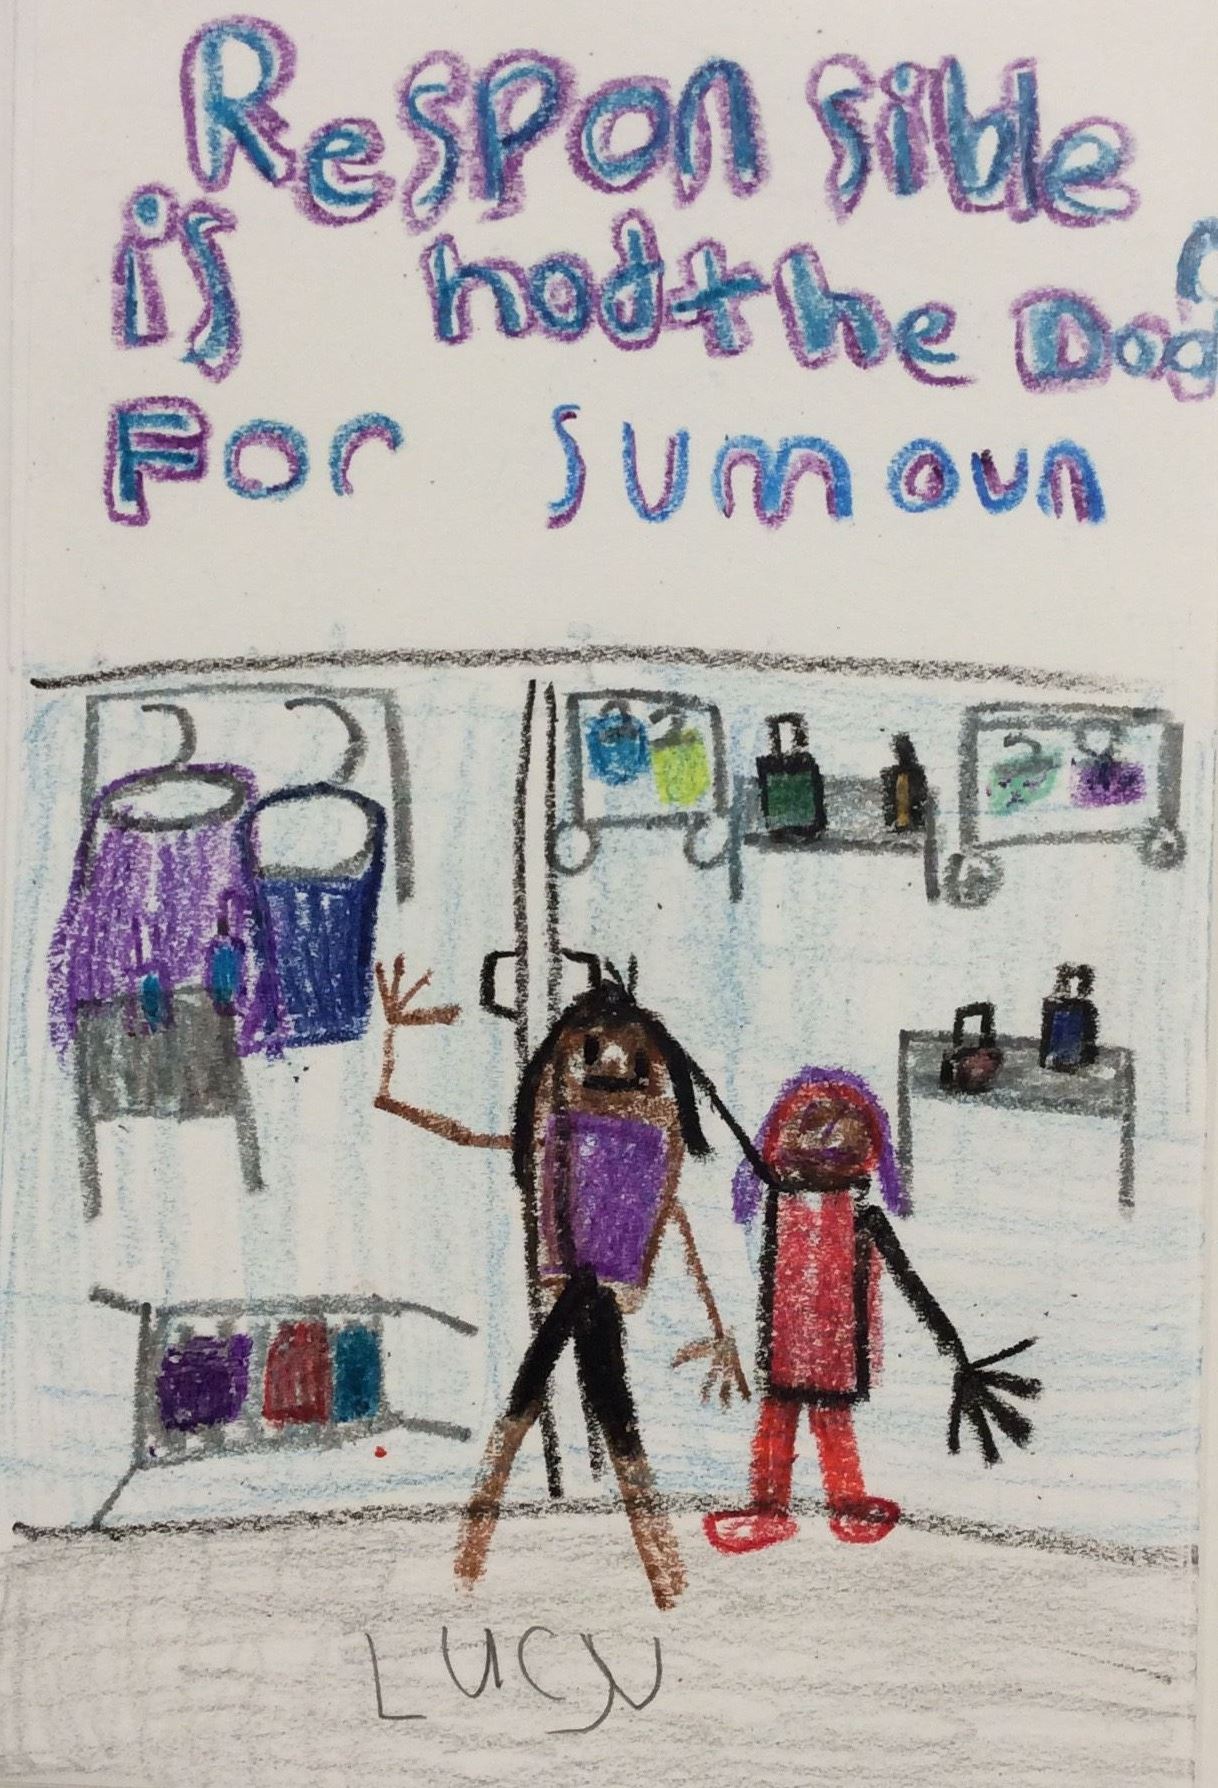 Responsible
is hodthe Dog
For sumoun
Lucy